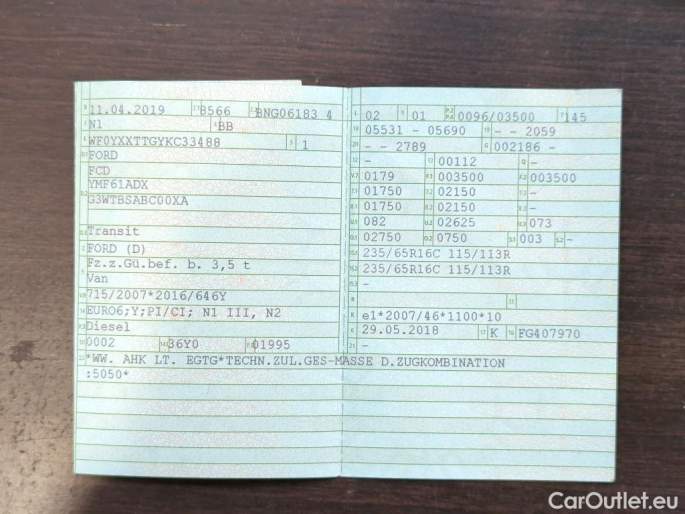 11.04.2019 8566 BNG06183 4
N1 BB
WF0YXXTTGYKC33488 1
FORD
FCD
YMF61ADX
G3WTBSABC00XA
Transit
FORD (D)
Fz.z.Gü.bef. b. 3,5 t
Van
715/2007*2016/646Y
EURO6;Y;PI/CI; N1 III, N2
Diesel
0002 36Y0 01995
*WW. AHK LT. EGTG*TECHN.ZUL.GES-MASSE D.ZUGKOMBINATION
:5050*
02 01 0096/03500 145
05531 - 05690 - - 2059
- - 2789 002186 -
- 00112 -
0179 003500 003500
01750 02150 -
01750 02150 -
082 02625 073
02750 0750 003 -
235/65R16C 115/113R
235/65R16C 115/113R
-
e1*2007/46*1100*10
29.05.2018 K FG407970
-
CarOutlet.eu